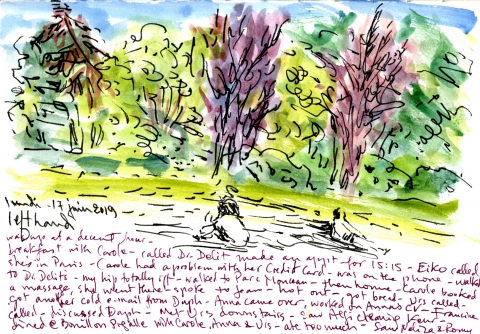 lundi - 17 juin 2019
left hand
woke up at a decent hour -
breakfast with Carole - called Dr. Delit made an appt for 15:15 - Eiko called
she's in Paris - Carole had a problem with her Credit Card - was on the phone - walked
to Dr. Delit's - my hip totally off - walked to Parc Monceau - then home - Carole booked
a massage, she went there - wrote to Jean - hot out - got bored - Vis called -
got another cold e-mail from Daph - Anna came over, worked on Anna's CV -
called - discussed Daph - Met Vis downstairs - Saw Alfie, Francine
dined @ Bouillon Pigalle with Carole, Anna & Vis - ate too much -